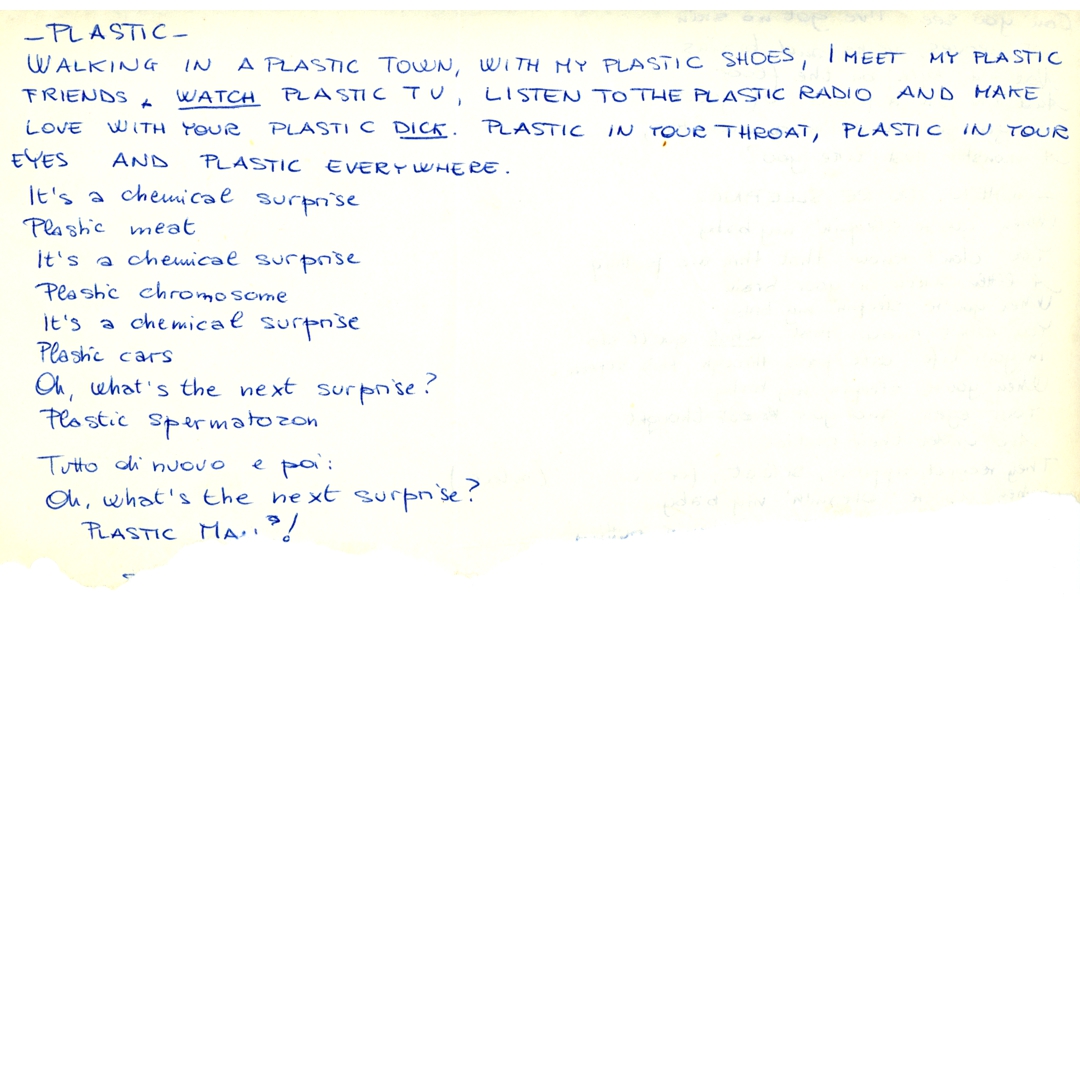 -PLASTIC-
WALKING IN A PLASTIC TOWN, WITH MY PLASTIC SHOES, I MEET MY PLASTIC
FRIENDS, WATCH PLASTIC TV, LISTEN TO THE PLASTIC RADIO AND MAKE
LOVE WITH YOUR PLASTIC DICK. PLASTIC IN YOUR THROAT, PLASTIC IN YOUR
EYES AND PLASTIC EVERYWHERE.
It's a chemical surprise
Plastic meat
It's a chemical surprise
Plastic chromosome
It's a chemical surprise
Plastic cars
Oh, what's the next surprise?
Plastic spermatozon
Tutto di nuovo e poi:
Oh, what's the next surprise?
PLASTIC